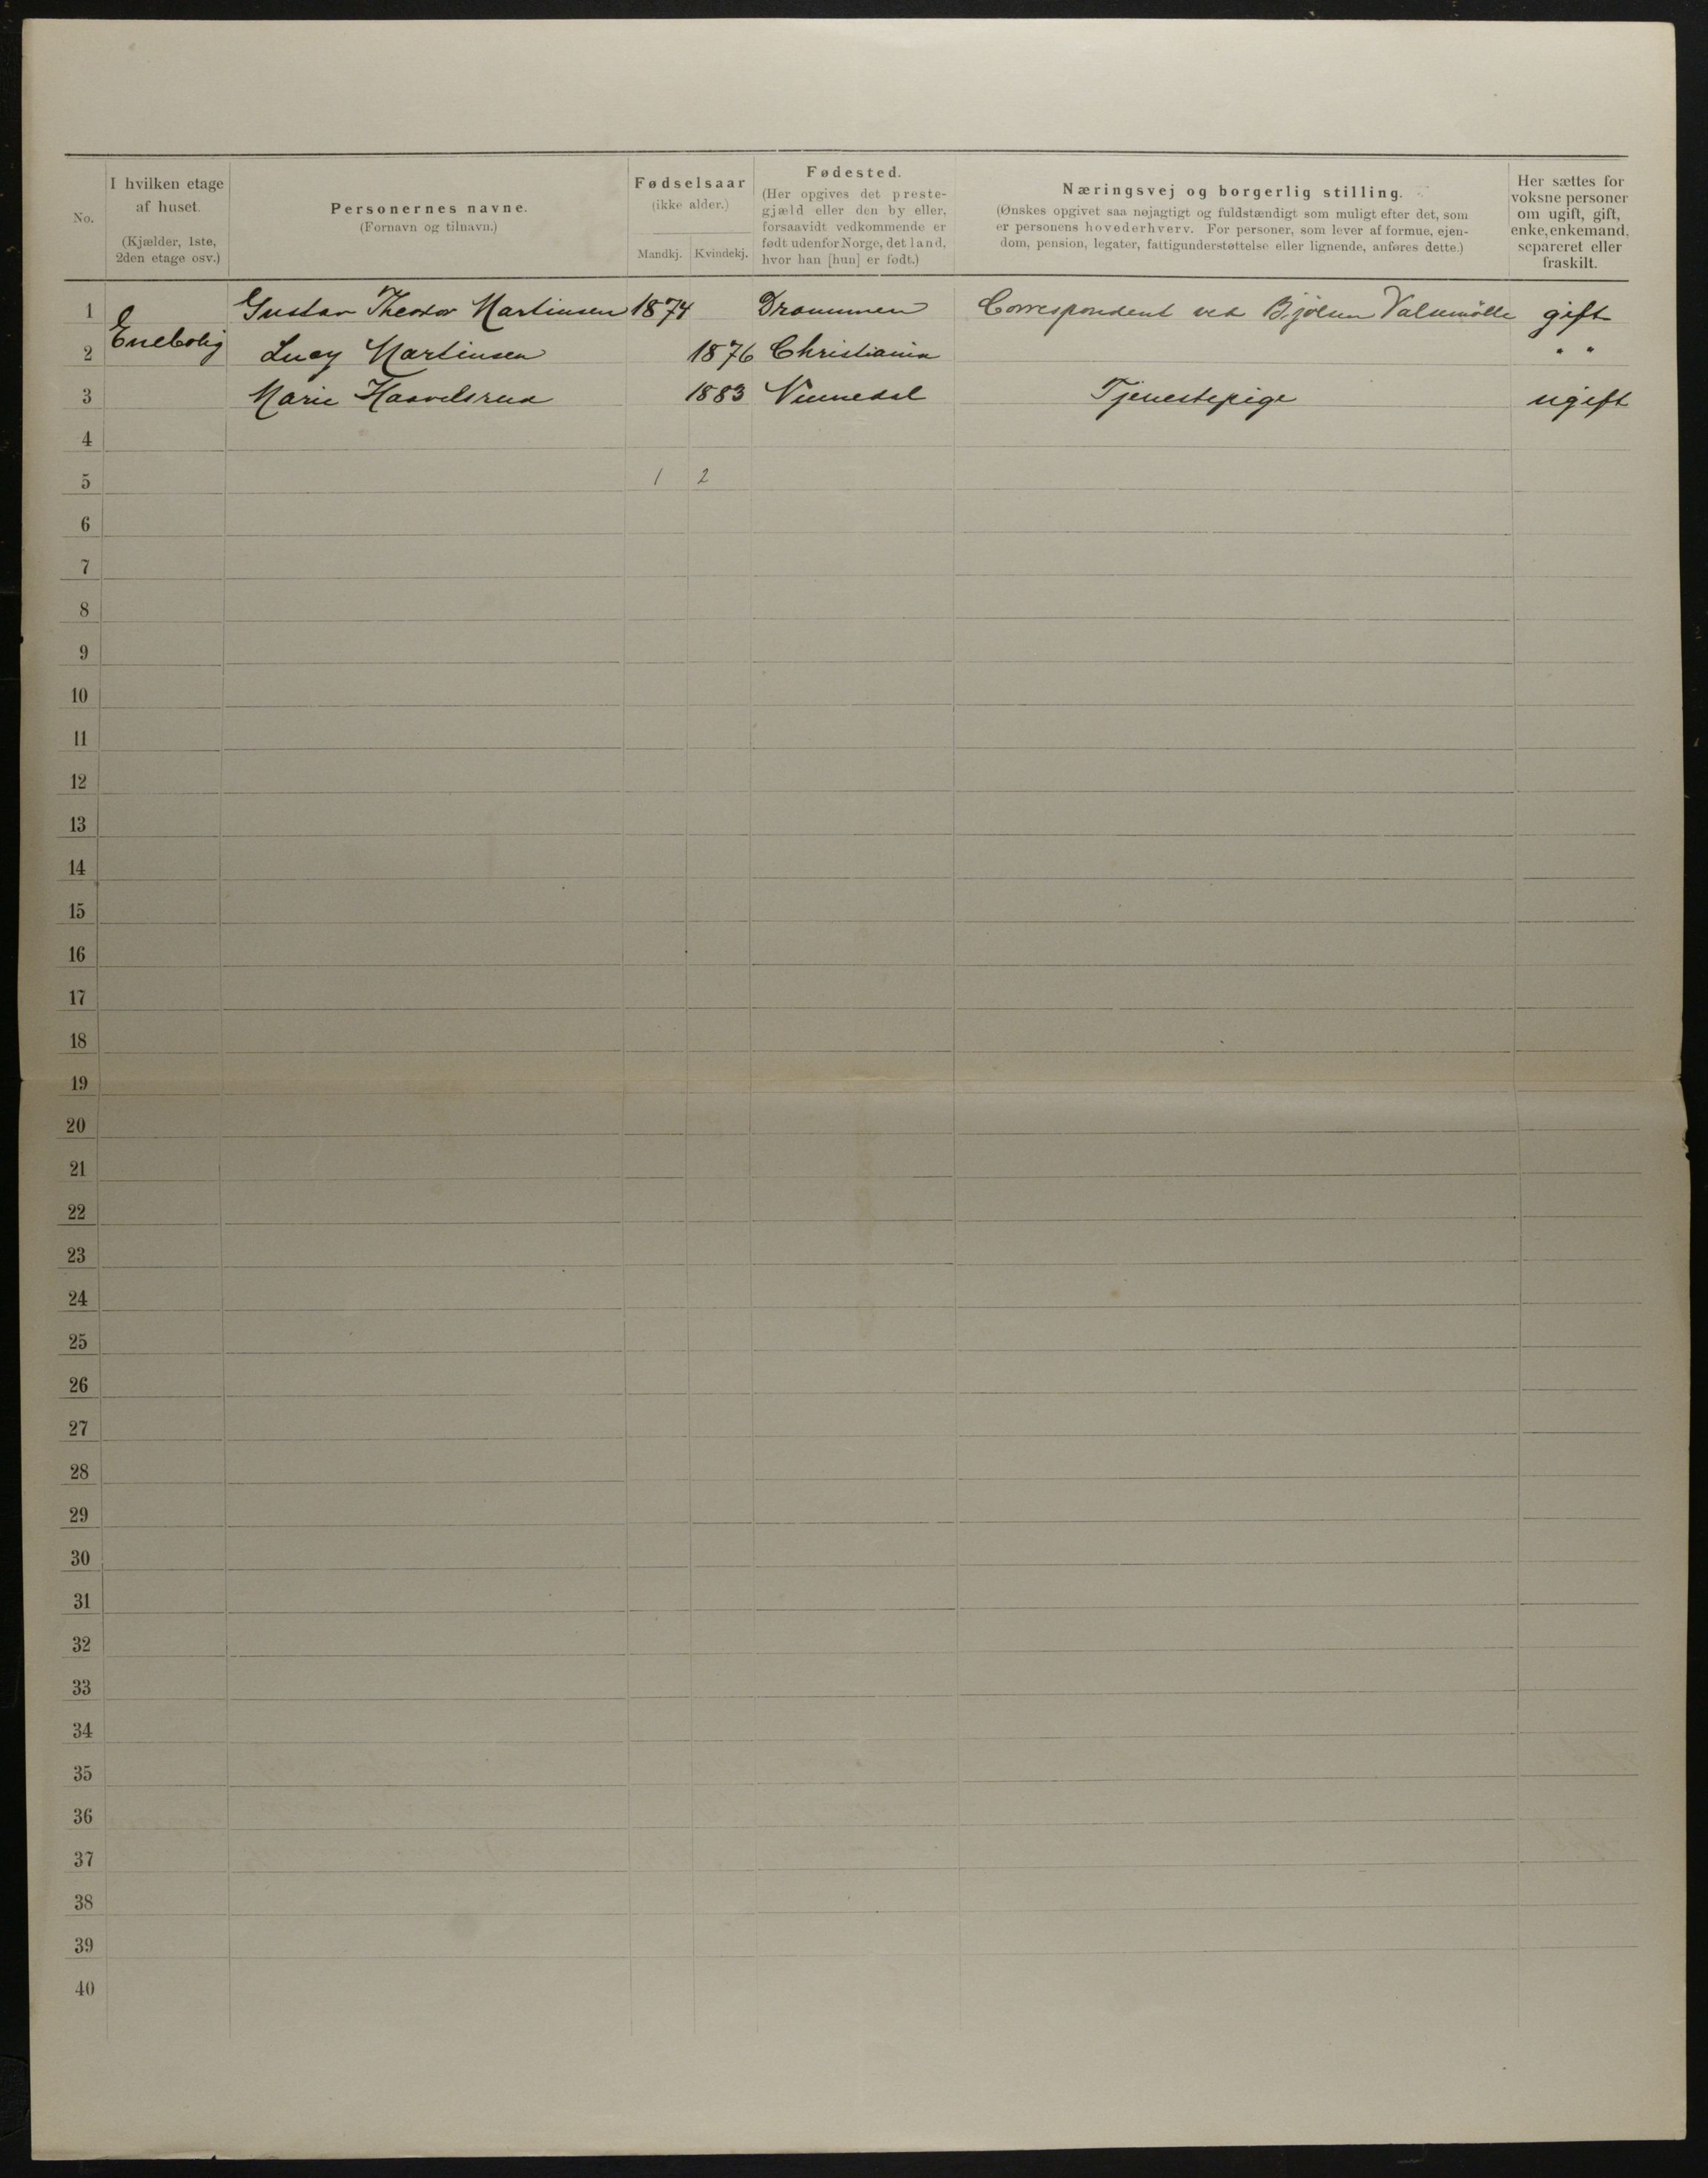 No.
I hvilken etage af huset.
(Kjælder, 1ste, 2den etage osv.)
Personernes navne.
(Fornavn og tilnavn.)
Fødselsaar
(ikke alder.)
Mandkj. Kvindekj.
Fødested.
(Her opgives det preste-
gjæld eller den by eller,
forsaavidt vedkommende er
født udenfor Norge, det land,
hvor han [hun] er født.)
Næringsvej og borgerlig stilling.
(Ønskes opgivet saa nøjagtigt og fuldstændigt som muligt efter det, som
er personens hovederhverv. For personer, som lever af formue, ejen-
dom, pension, legater, fattigunderstøttelse eller lignende, anføres dette.)
Her sættes for
voksne personer
om ugift, gift,
enke, enkemand,
separeret eller
fraskilt.
1 Enebolig Gustav Theodor Martinsen 1874 Drammen Correspondent ved Bjölsen Valsemölle gift
2 Lucy Martinsen 1876 Christiania " "
3 Marie Haavelsrud 1883 Tjenestepige ugift
4
5 1 2
6
7
8
9
10
11
12
13
14
15
16
17
18
19
20
21
22
23
24
25
26
27
28
29
30
31
32
33
34
35
36
37
38
39
40